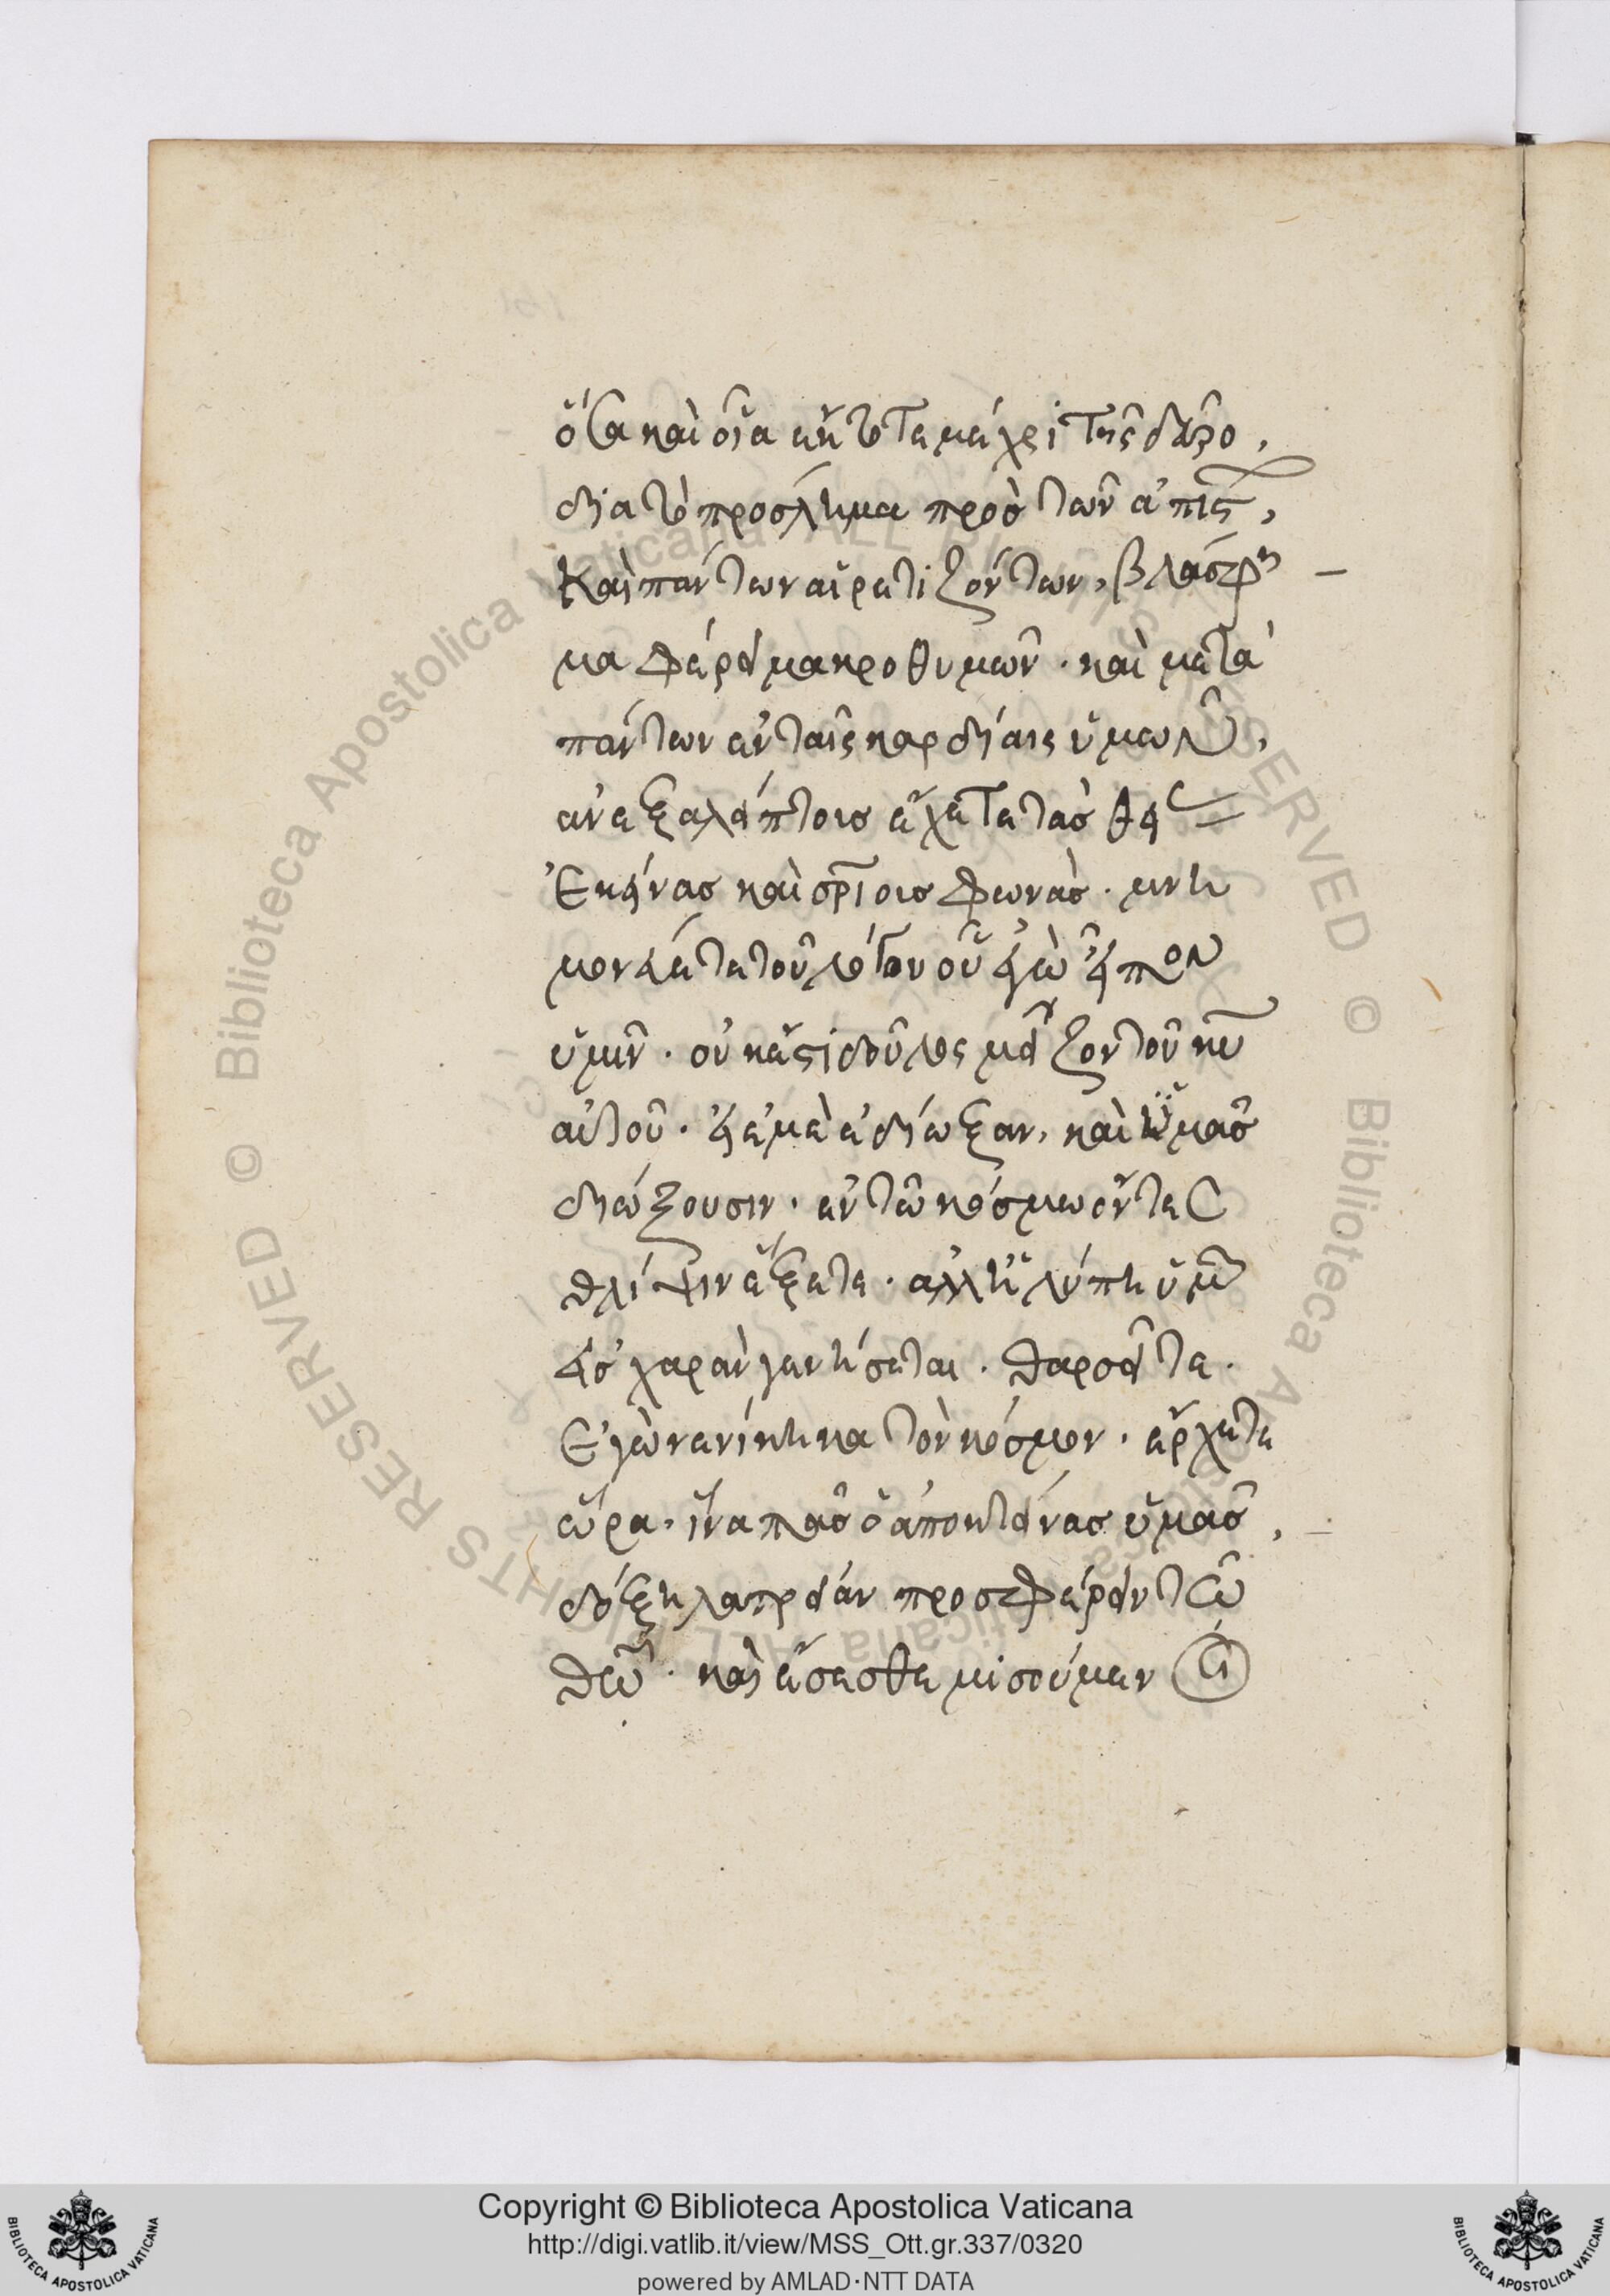 ὅσα καὶ οἷα ἐκ τότε μέχρι τῆς δεῦρο,
διὰ τὸ πρόσλημμα πρὸς τῶν ἀπίστ,
καὶ πάντων αἱρετιζόντων, βλάσφη
μα φέρει μακροθυμῶν · καὶ μετὰ
πάντων ἐν ταῖς καρδίαις ὑμῶν,
ἀνεξαλείπτοις ἔχετε τὰς θεί
Ἐκείνας καὶ σρίοις φωνάς · μνη
μονεύετε τοῦ λόγου οὗ ἐγὼ εἶπον
ὑμῖν · οὐκ ἔστι δοῦλος μείζον τοῦ κυ
αὐτοῦ · εἰ ἐμὲ ἐδίωξαν, καὶ ὑμᾶς
διώξουσιν · ἐν τῶ κόσμω ὄντες
θλίψιν ἕξετε · ἀλλ' ἡ λύπη ὑμῶν
εἰς χαρὰν γενήσεται · θαρσεῖτε ·
Ἐγὼ νενίκηκα τὸν κόσμον · ἔρχεται
ὥρα, ἵνα πᾶς ὁ ἀποκτείνας ὑμᾶς,
δόξη λατρείαν προσφέρειν τῶ
θεῶ · καὶ ἔσεσθε μισούμεν
Copyright © Biblioteca Apostolica Vaticana
http://digi.vatlib.it/view/MSS_Ott.gr.337/0320
powered by AMLAD·NTT DATA
BIBLIOTECA APOSTOLICA VATICANA
BIBLIOTECA APOSTOLICA VATICANA
© Biblioteca Apostolica Vaticana ALL RIGHTS RESERVED
© Biblioteca Apostolica Vaticana ALL RIGHTS RESERVED